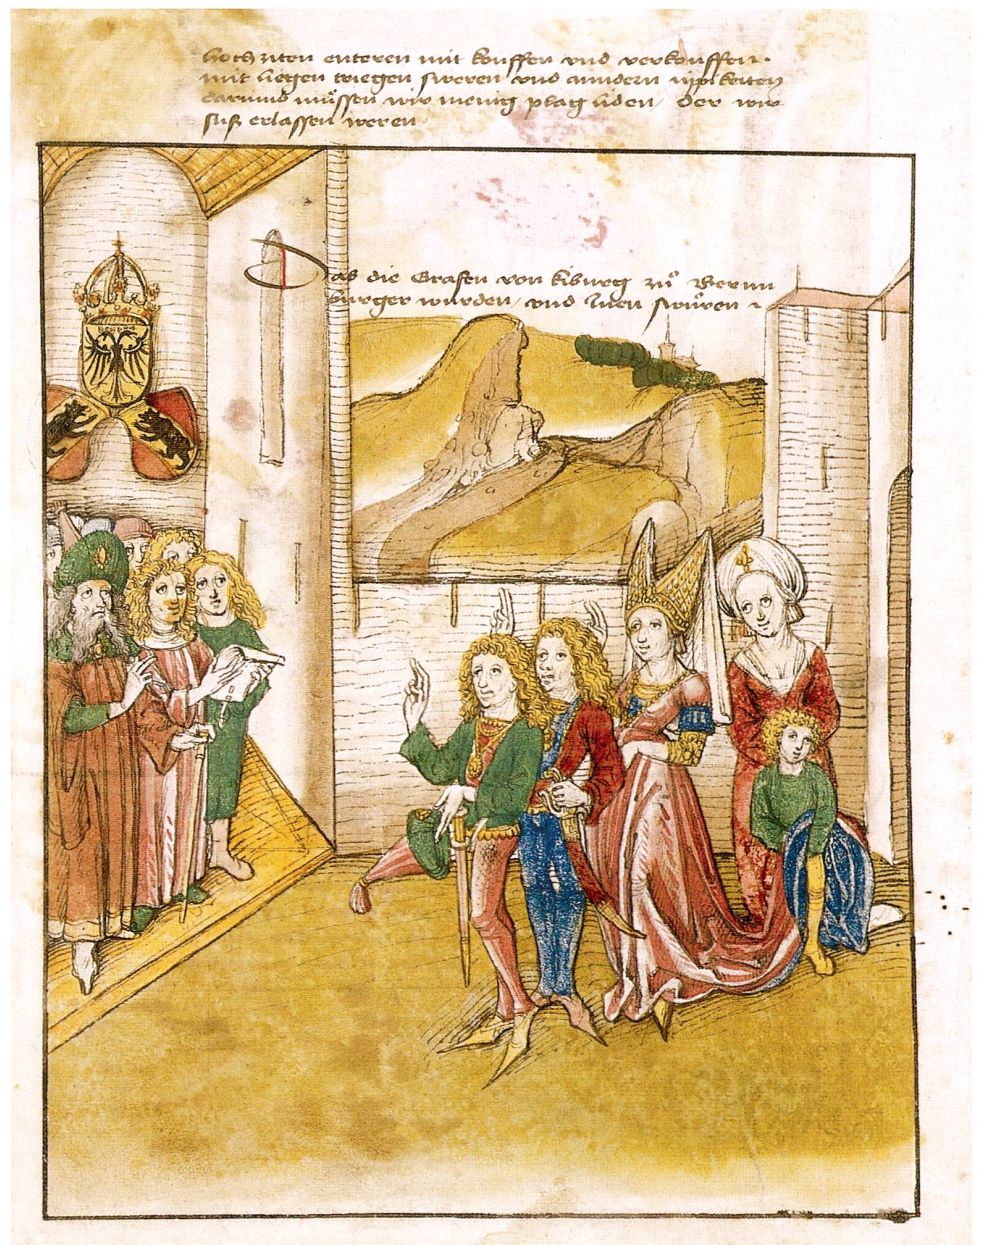 hoch ziten enteren mit kouffen und verkouffen.
mit liegen triegen sweren und anndern üpikeiten
darumb müssen wir menig plag liden / der wir
suß erlassen weren
Das die Grafen von kiburg zů Bernn
burger wurden / und inen swůren